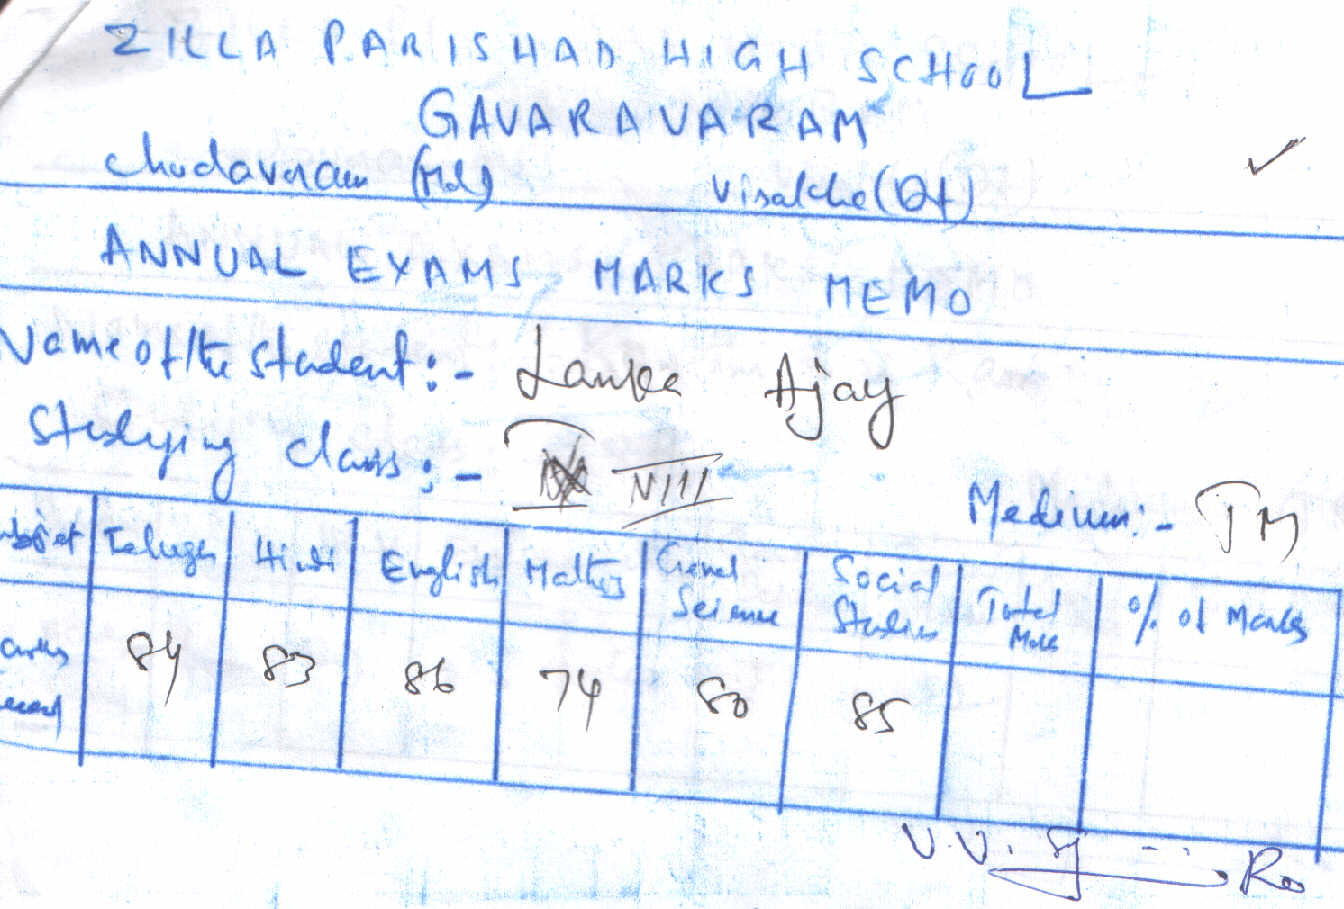 ZILLA PARISHAD HIGH SCHOOL
GAVARAVARAM
Chodavaram (Mdl) Visakha (Dt)
ANNUAL EXAMS MARKS MEMO
Name of the student :- Lanka Ajay
Studying class :- VIII
Medium :- TM
Subject Telugu Hindi English Maths General Science Social Studies Total Marks % of Marks
Marks 84 83 86 74 80 85
V.V.